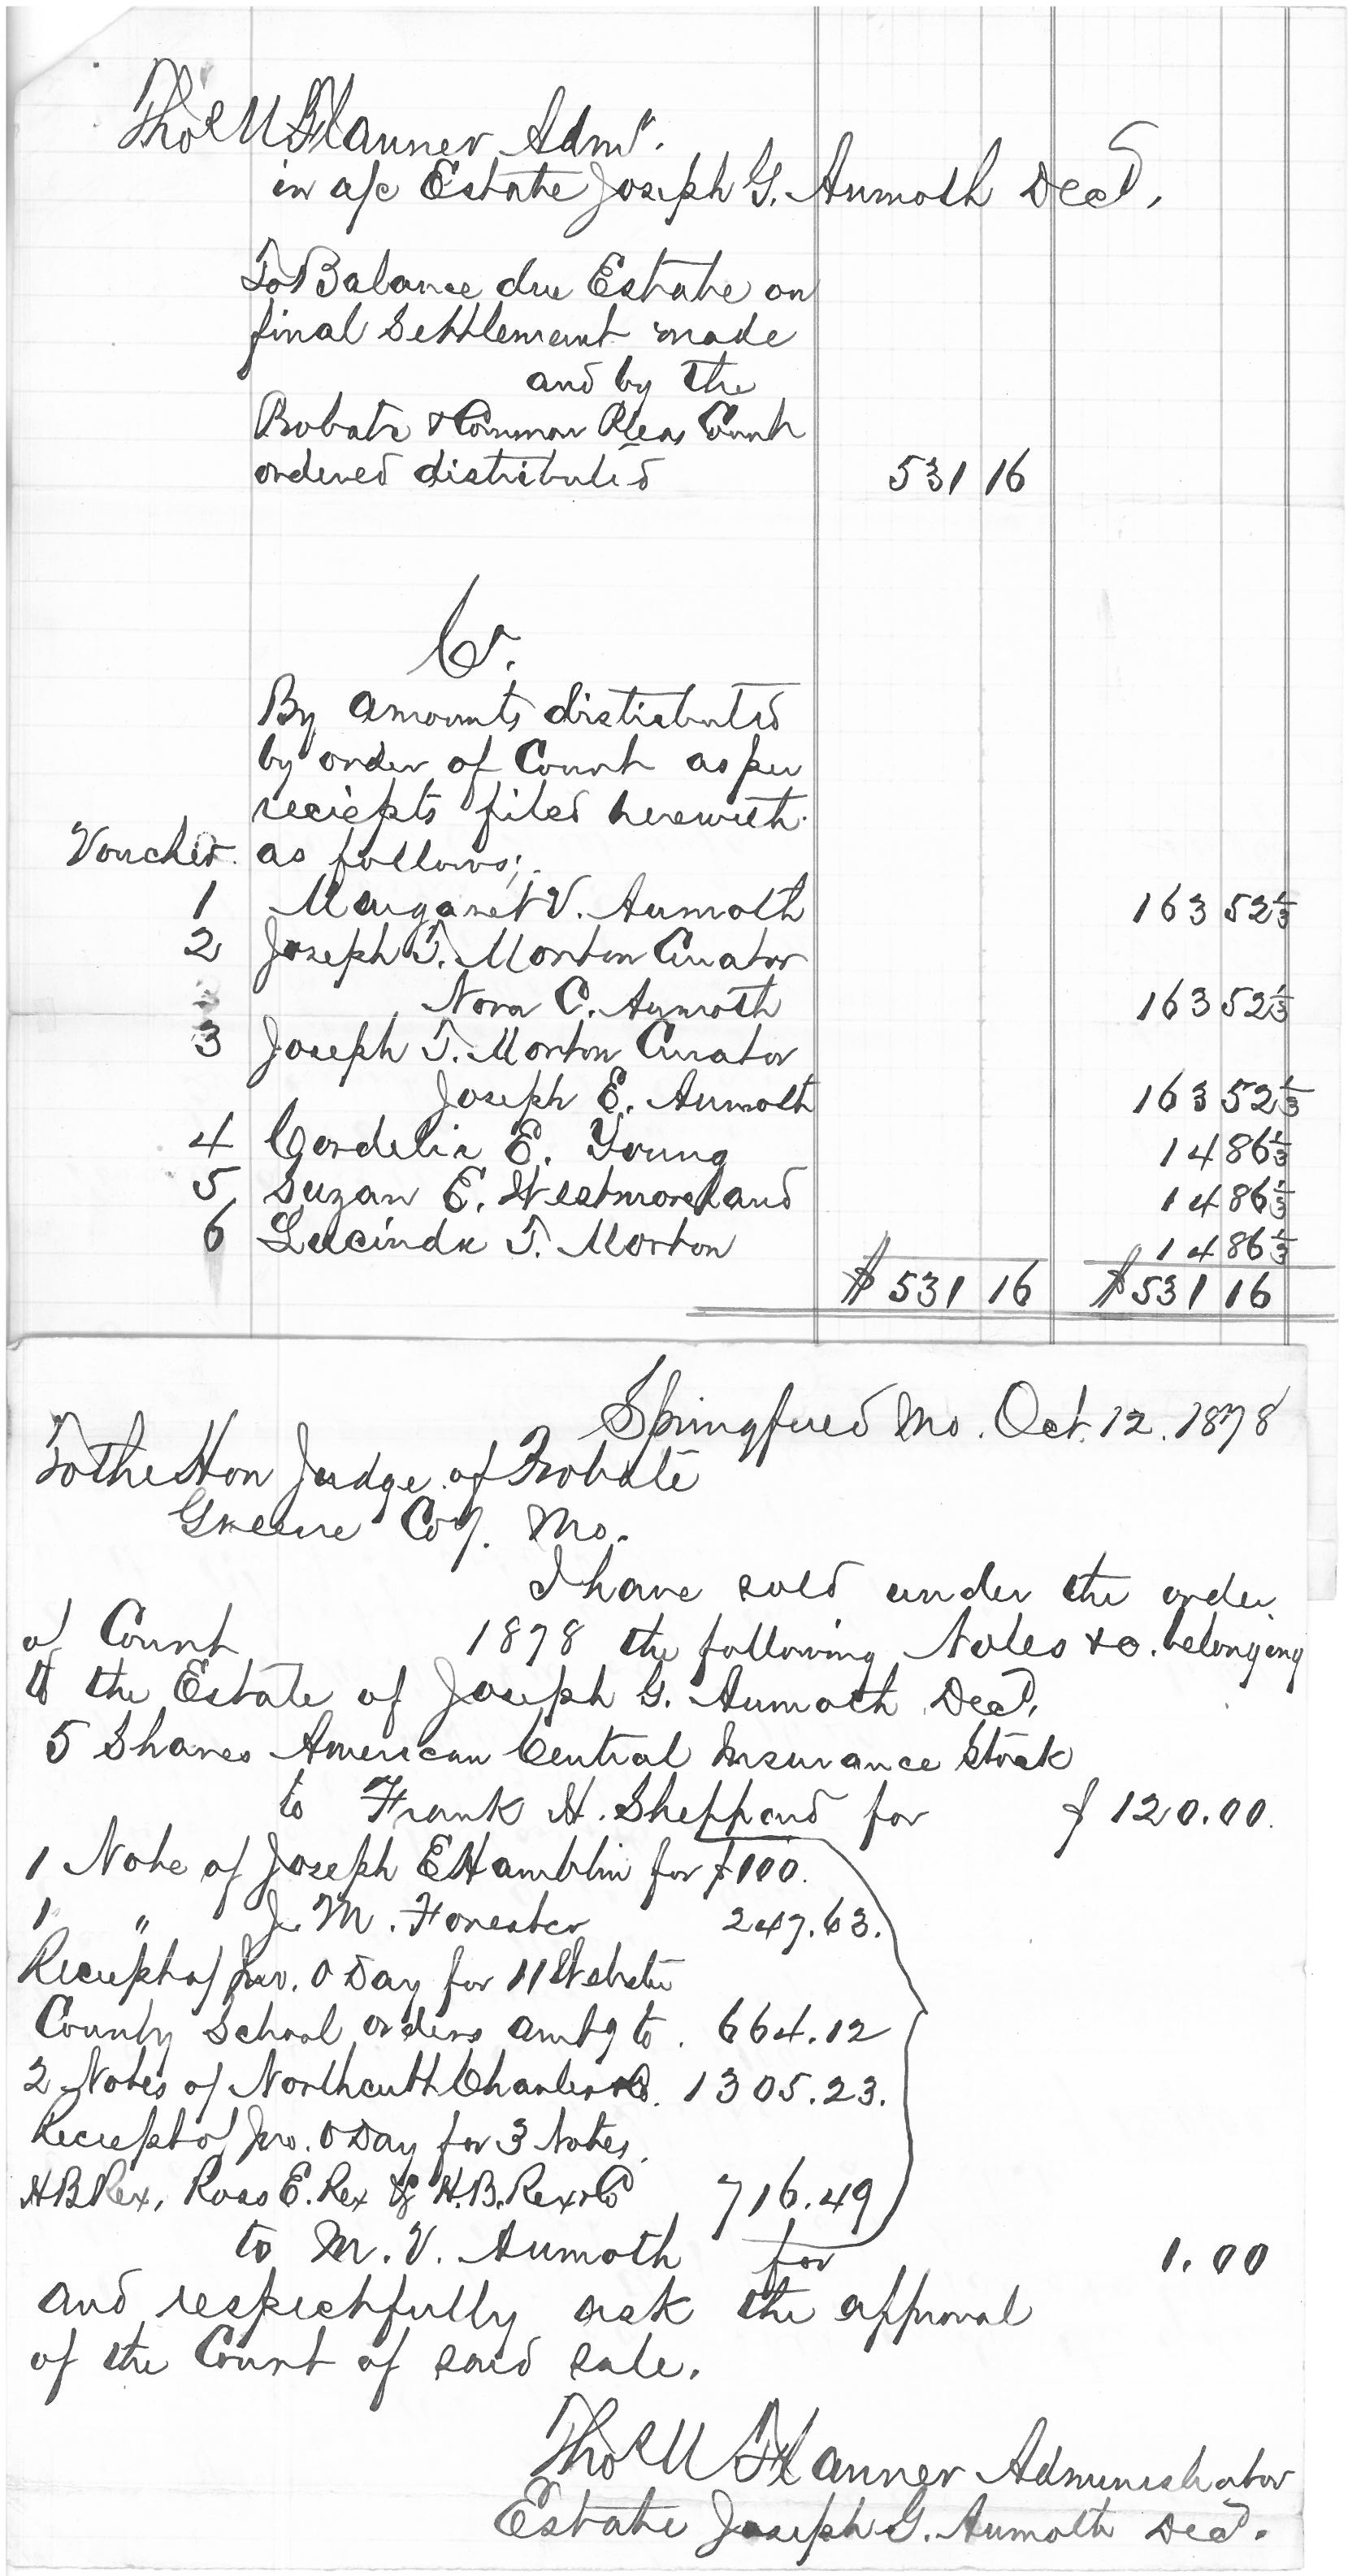 Thos U Flanner Admr.
in a/c Estate Joseph G. Aumoth Decd.
To Balance due Estate on
final Settlement made
and by the
Probate & Common Pleas Court
ordered distributed 531 16
Cr.
By amounts distributed
by order of Court as per
reciepts filed herewith
Voucher as follows;
1 Margaret V. Aumoth 163 52 1/3
2 Joseph T. Morton Curator
Nora C. Aumoth 163 52 1/3
3 Joseph T. Morton Curator
Joseph E. Aumoth 163 52 1/3
4 Cordelia E. Young 14 86 1/3
5 Suzan E. Westmoreland 14 86 1/3
6 Lucinda T. Morton 14 86 1/3
$ 531 16 $ 531 16
Springfield Mo. Oct. 12. 1878
To the Hon Judge of Probate
Greene Coy. Mo.
I have sold under the order
of Court 1878 the following Notes &c. belonging
to the Estate of Joseph G. Aumoth Decd.
5 Shares American Central Insurance Stock
to Frank H. Sheppard for $ 120.00.
1 Note of Joseph E Hamblin for $100.
1 " J. M. Forester 247.63.
Reciept of Jno. O Day for 11 Webster
County School orders amtg to. 664.12
2 Notes of Northcutt Charles & Co. 1305.23.
Reciept of Jno. O Day for 3 Notes.
H B Rex, Ross E. Rex & H. B. Rex & Co 716.49
to M. V. Aumoth for 1.00
and respectfully ask the approval
of the Court of said sale.
Thos U Flanner Administrator
Estate Joseph G. Aumoth Decd.